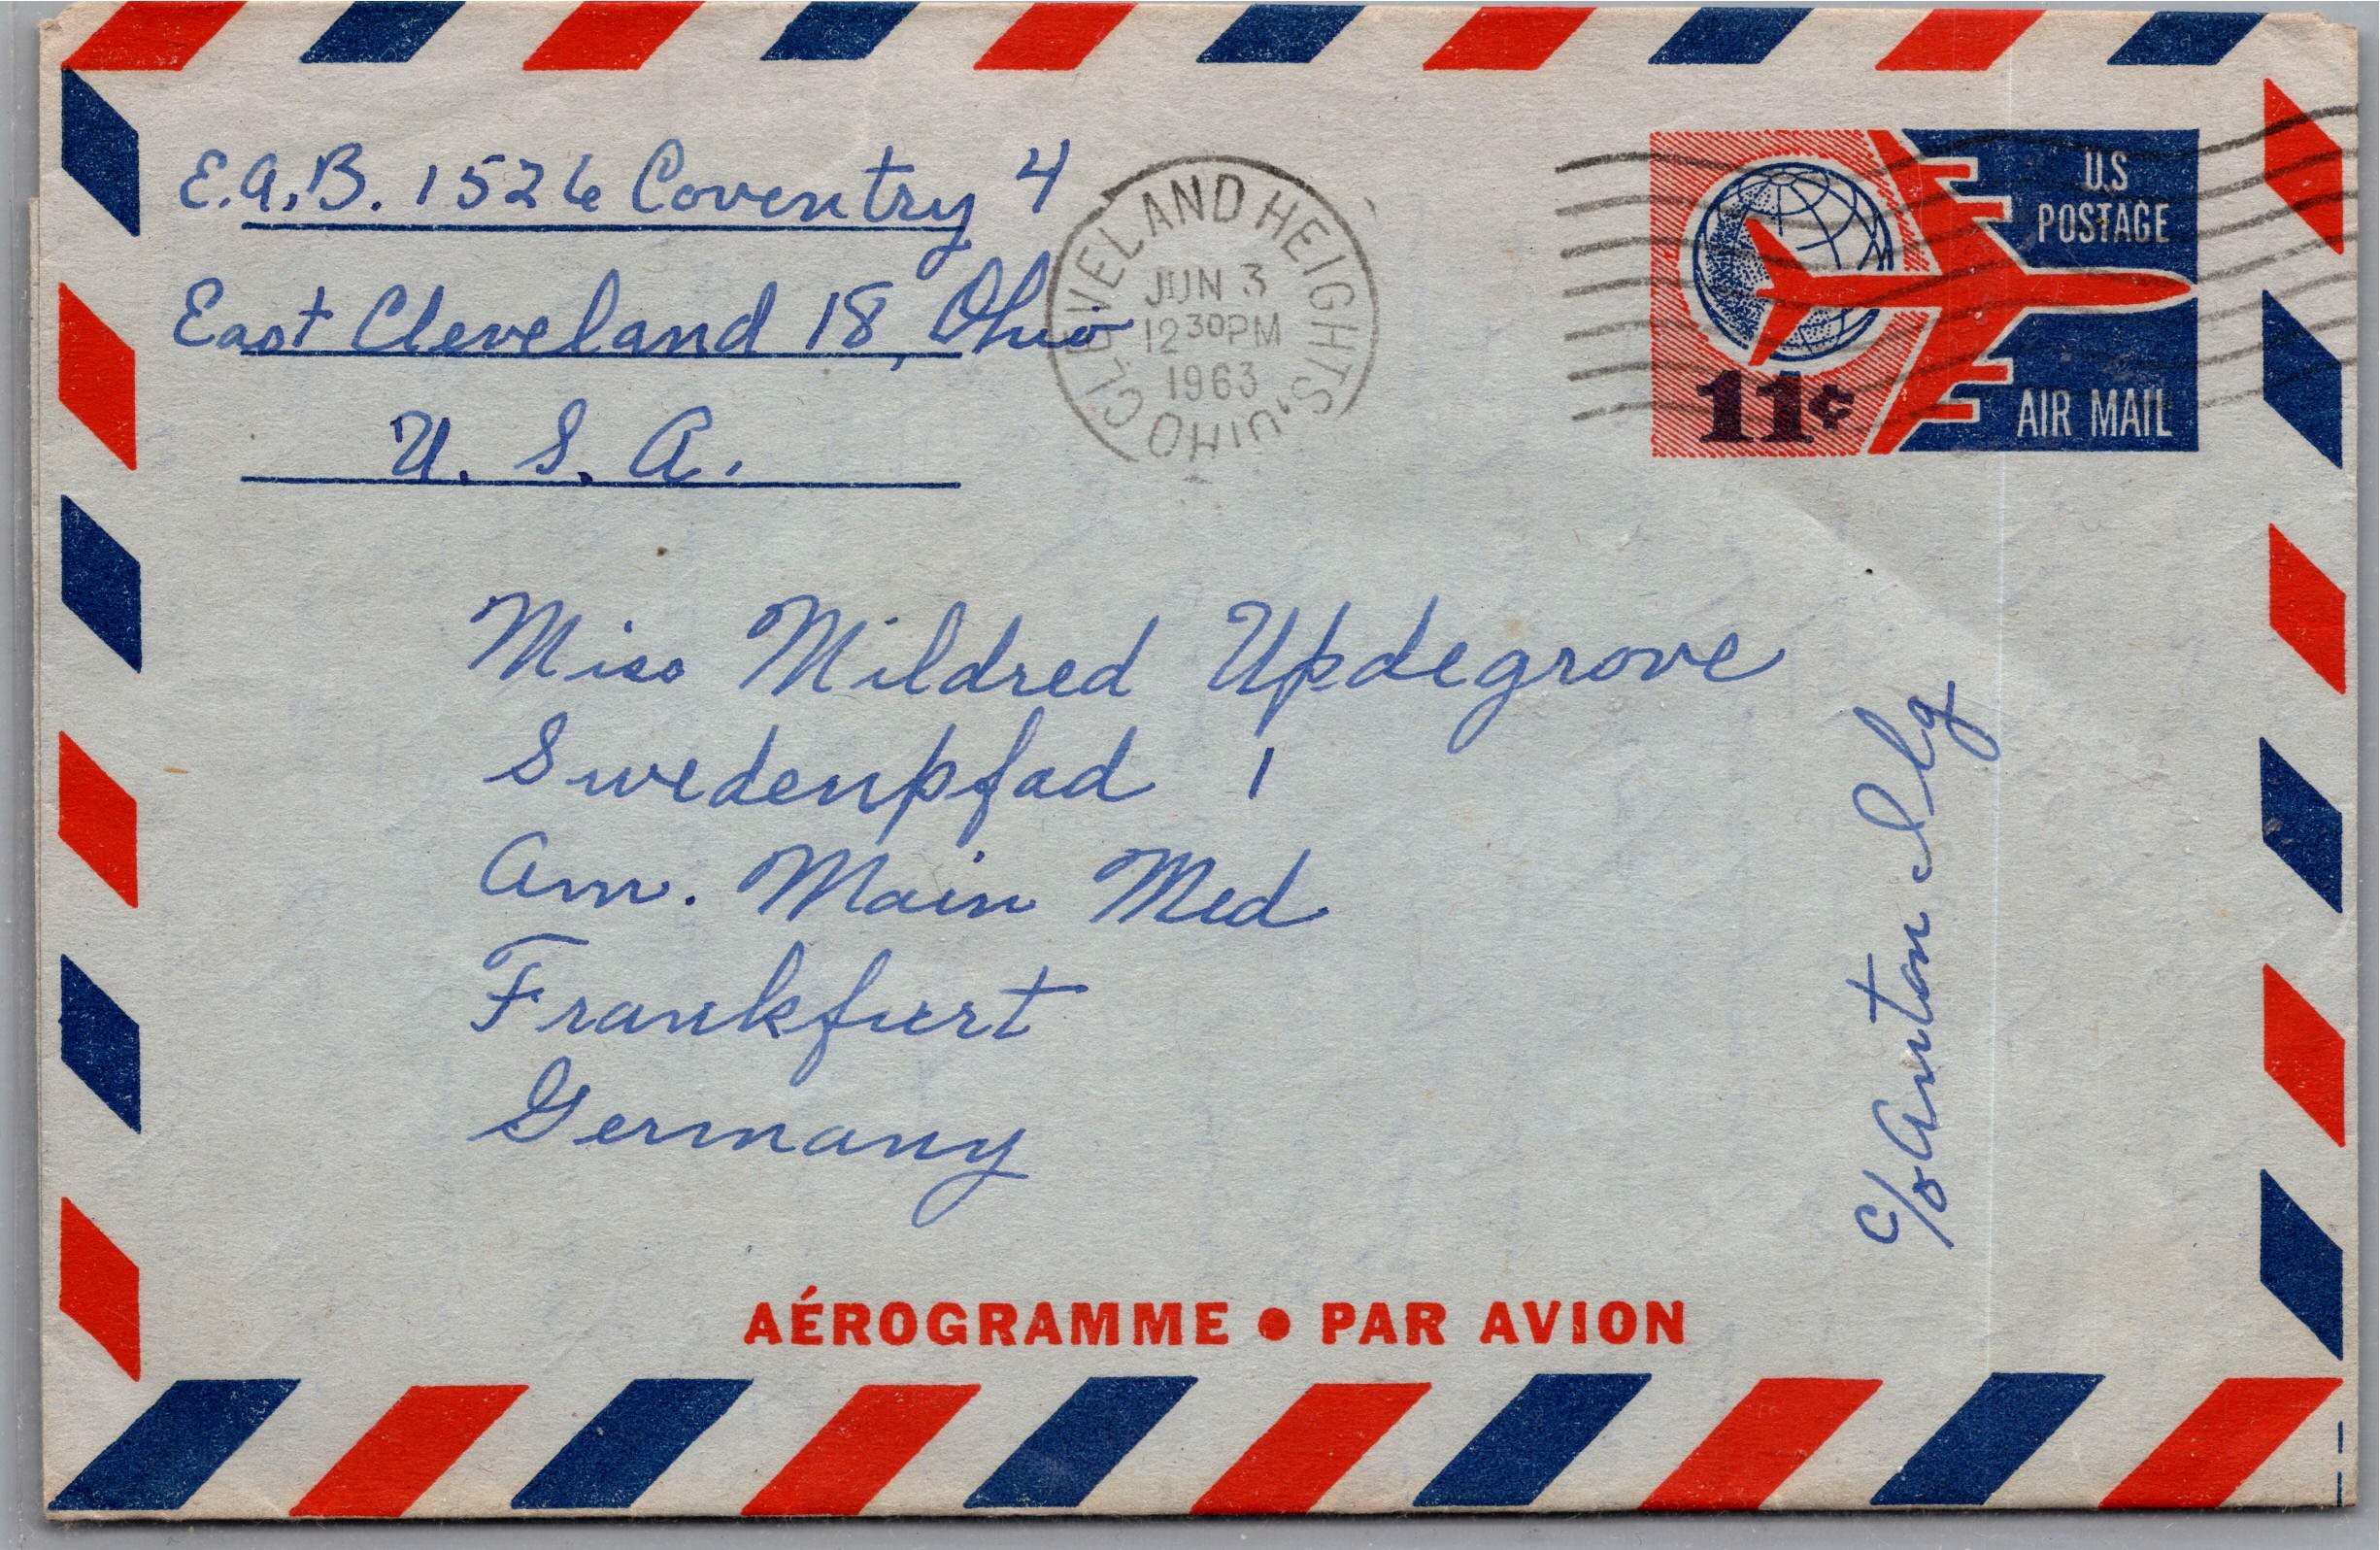 E.A.B. 1526 Coventry 4
East Cleveland 18, Ohio
U. S. A.
CLEVELAND HEIGHTS, OHIO
JUN 3
12 30 PM
1963
U.S
POSTAGE
11¢
AIR MAIL
Miss Mildred Updegrove
Swedenpfad 1
Am. Main Med
Frankfurt
Germany
c/o Anton Ilg
AÉROGRAMME • PAR AVION